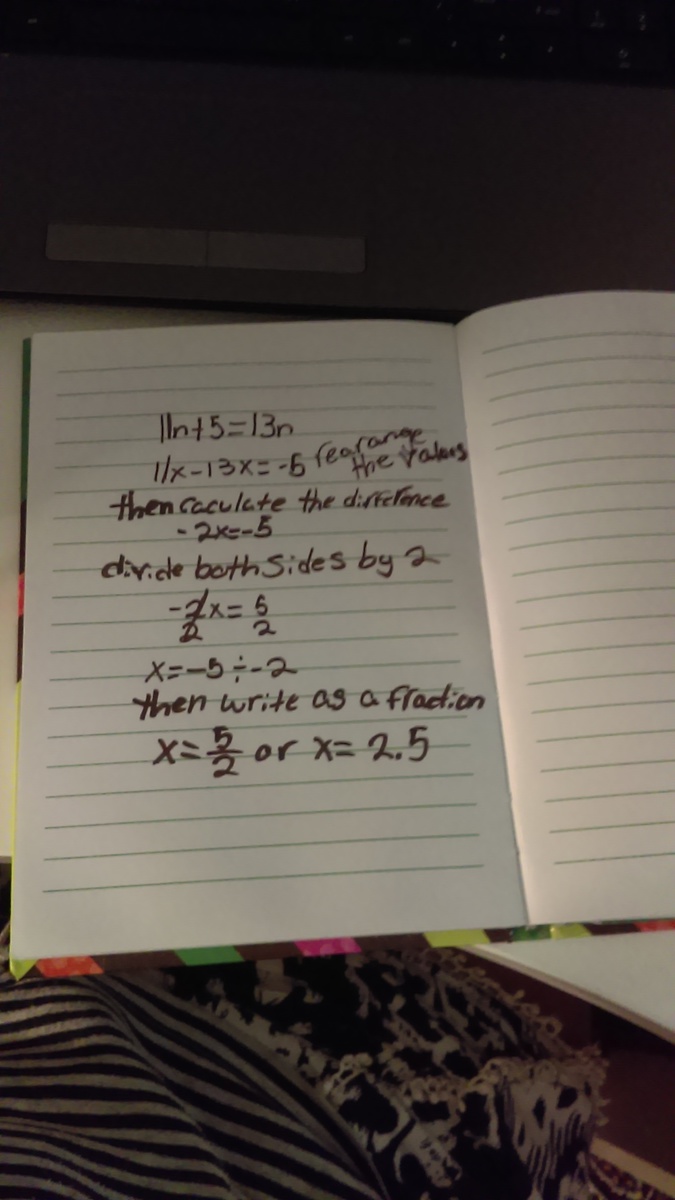 11n+5=13n
11x-13x=-5 rearange the values
then caculate the difference
-2x=-5
divide both sides by 2
-2/2 x= 5/2
x=-5÷-2
then write as a fraction
x=5/2 or x= 2.5